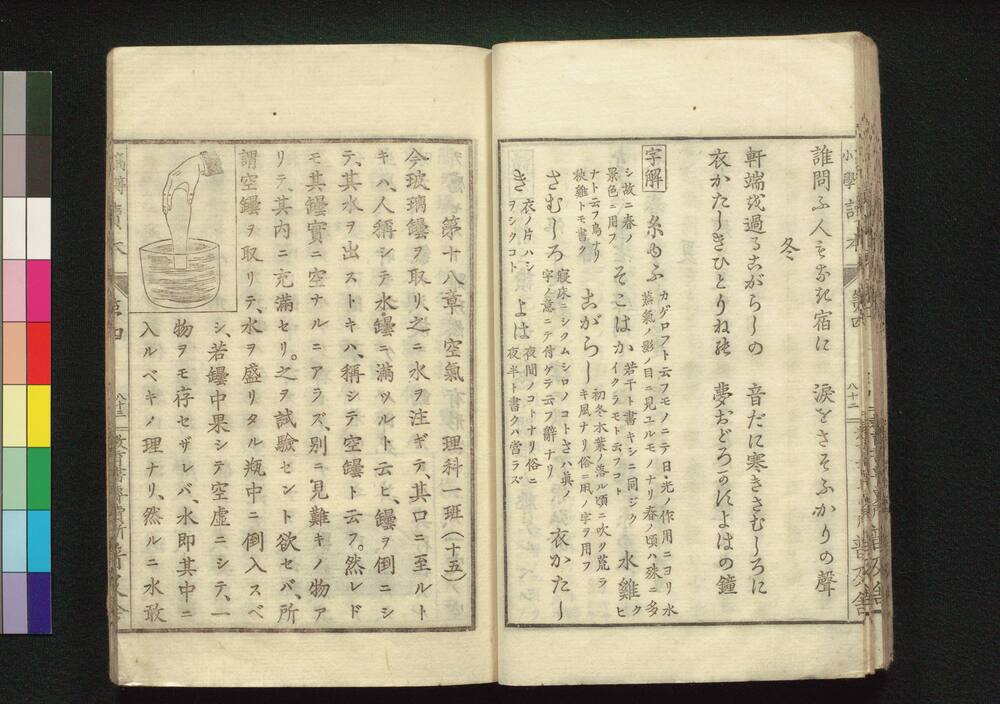 誰問ふ人もなき宿に　涙をさそふかりの聲
冬
軒端を過るこがらしの　音だに寒きさむしろに
衣かたしきひとりね the 夢おどろかすよはの鐘
字解　糸ゆふ　カゲロフト云フモノニテ日光ノ作用ニヨリ水
蒸氣ノ影ノ目ニ見エルモノナリ春ノ頃ハ殊ニ多
シ故ニ春ノ
景色ニ用フ　そこはか　若干ト書キシニ同ジク
イクラモト云フコト　水雞　クヒ
ナト云フ鳥ナリ
秧雞トモ書ク　こがらし　初冬木葉ノ落ル頃ニ吹ク荒ラ
キ風ナリ俗ニ凩ノ字ヲ用フ
さむしろ　寢床ニシクムシロノコトさハ眞ノ
字ノ意ニテ付ケテ云フ辭ナリ　衣かたし
き　衣ノ片ハシ
ヲシクコト　よは　夜間ノコトナリ俗ニ
夜半ト書クハ當ラズ
第十八章　空氣　理科一班（十五）
今玻璃罎ヲ取リ、之ニ水ヲ注ギテ、其口ニ至ルト
キハ、人稱シテ水罎ニ滿ツルト云ヒ、罎ヲ倒ニシ
テ、其水ヲ出ストキハ、稱シテ空罎ト云フ。然レド
モ、其罎實ニ空ナルニアラズ、別ニ見難キノ物ア
リテ、其内ニ充滿セリ。之ヲ試驗セント欲セバ、所
謂空罎ヲ取リテ、水ヲ盛リタル瓶中ニ倒入スベ
シ、若罎中果シテ空虛ニシテ、一
物ヲモ存セザレバ、水即其中ニ
入ルベキノ理ナリ、然ルニ水敢